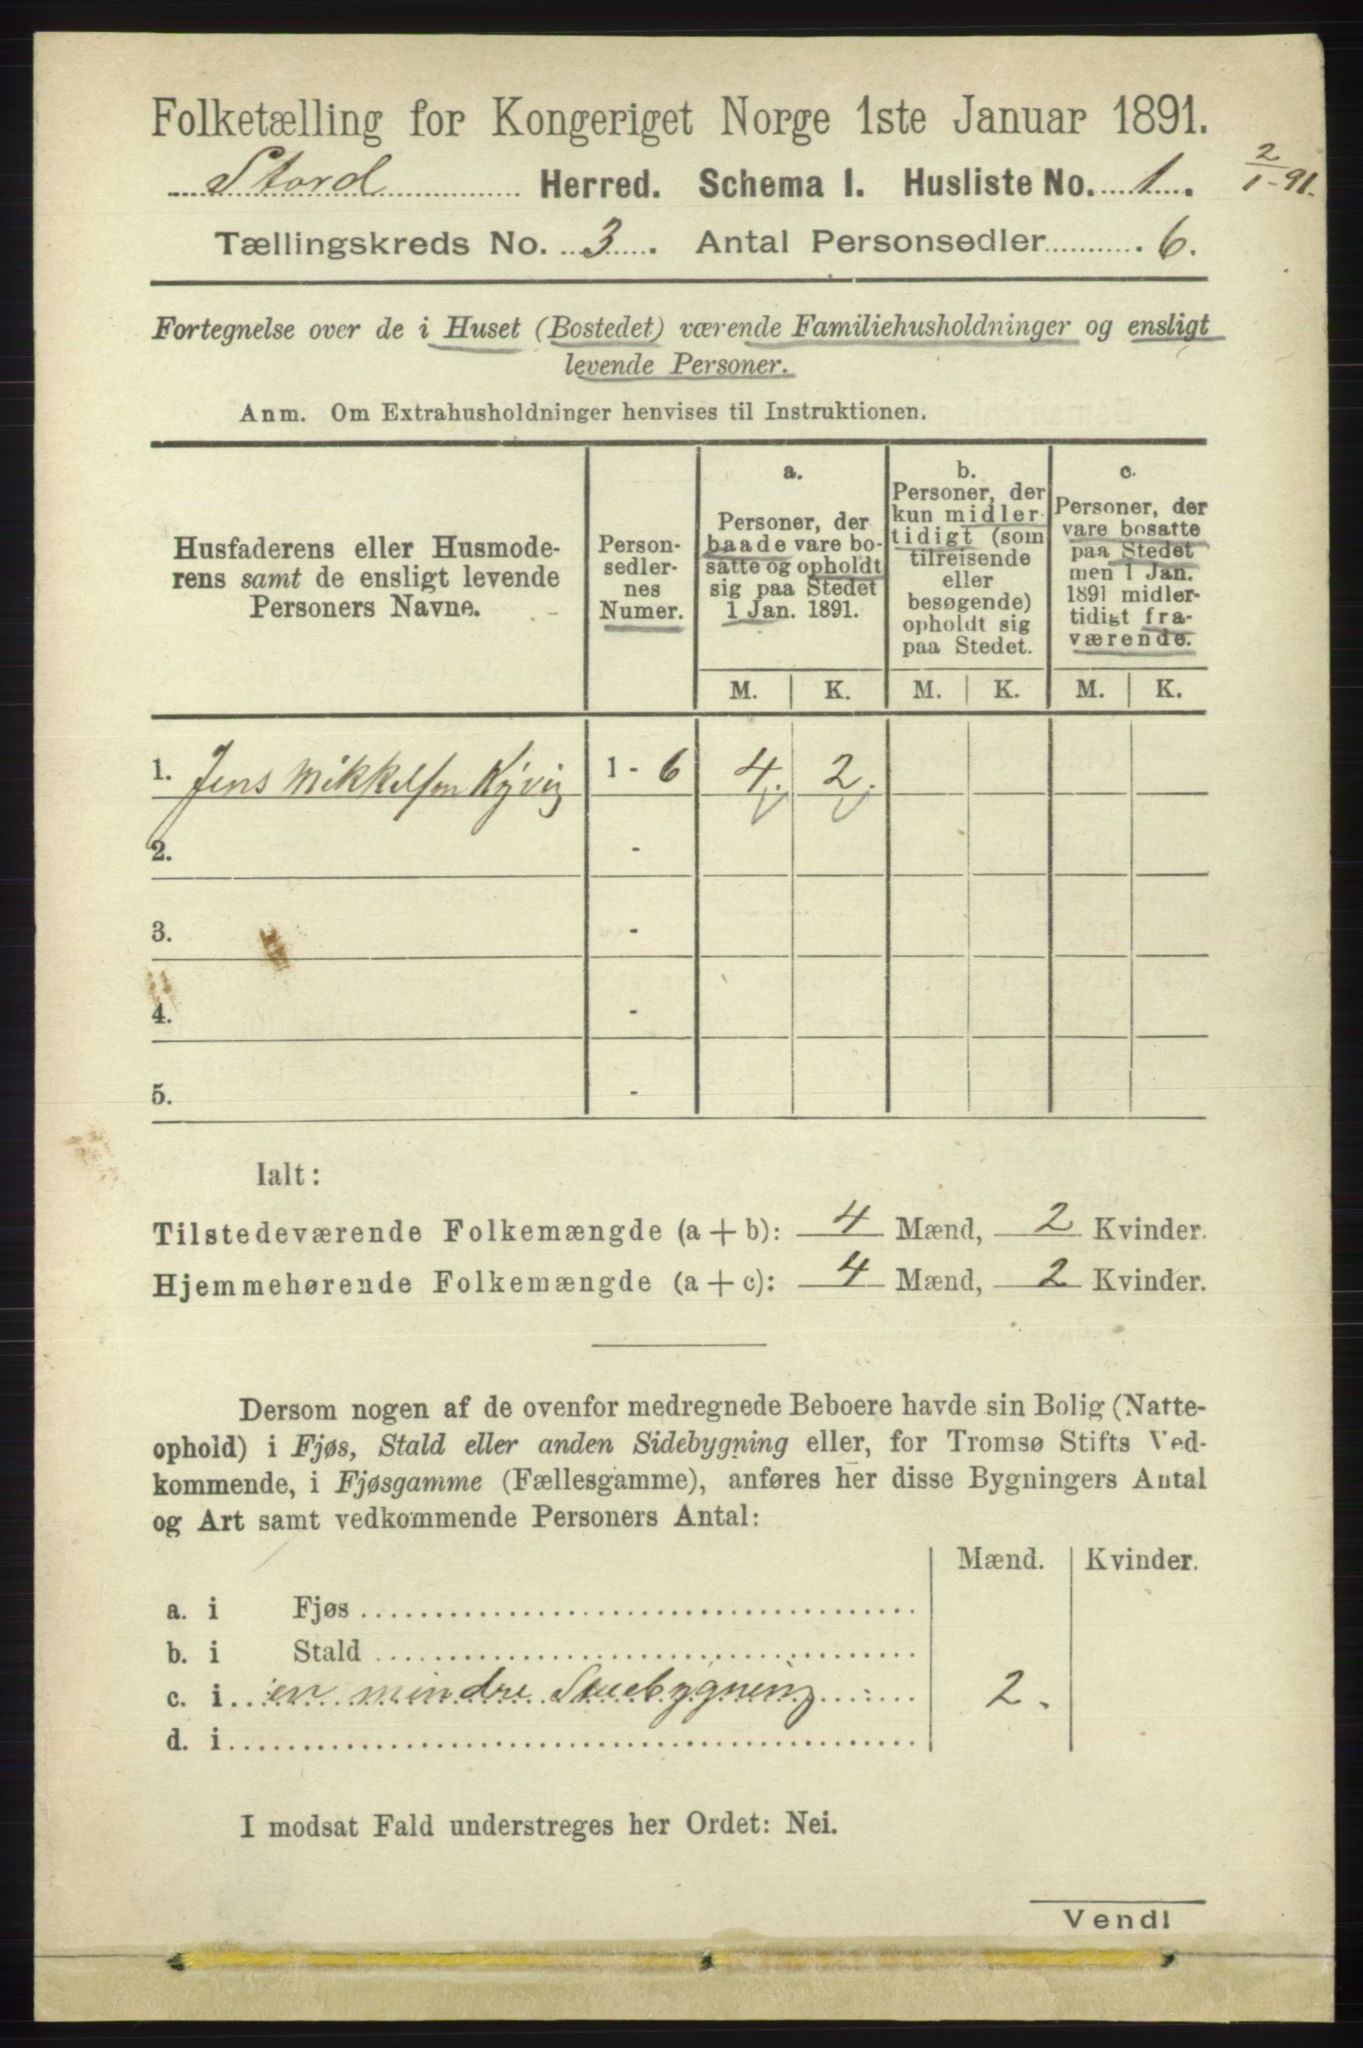 Folketælling for Kongeriget Norge 1ste Januar 1891.
Stord Herred. Schema I. Husliste No. 1. 2/1-91.
Tællingskreds No. 3. Antal Personsedler 6.
Fortegnelse over de i Huset (Bostedet) værende Familiehusholdninger og ensligt
levende Personer.
Anm. Om Extrahusholdninger henvises til Instruktionen.
Husfaderens eller Husmode-
rens samt de ensligt levende
Personers Navne.
Person-
sedler-
nes
Numer.
a.
Personer, der
baade vare bo-
satte og opholdt
sig paa Stedet
1 Jan. 1891.
b.
Personer, der
kun midler-
tidigt (som
tilreisende
eller
besøgende)
opholdt sig
paa Stedet.
c.
Personer, der
vare bosatte
paa Stedet
men 1 Jan.
1891 midler-
tidigt fra-
værende.
M. K. M. K. M. K.
1. Jens Mikkelsen Kyvig 1 - 6 4. 2.
2. -
3. -
4. -
5. -
Ialt:
Tilstedeværende Folkemængde (a + b): 4 Mænd, 2 Kvinder.
Hjemmehørende Folkemængde (a + c): 4 Mænd, 2 Kvinder.
Dersom nogen af de ovenfor medregnede Beboere havde sin Bolig (Natte-
ophold) i Fjøs, Stald eller anden Sidebygning eller, for Tromsø Stifts Ved-
kommende, i Fjøsgamme (Fællesgamme), anføres her disse Bygningers Antal
og Art samt vedkommende Personers Antal:
Mænd. Kvinder.
a. i Fjøs
b. i Stald
c. i en mindre Stuebygning 2.
d. i
I modsat Fald understreges her Ordet: Nei.
Vend!